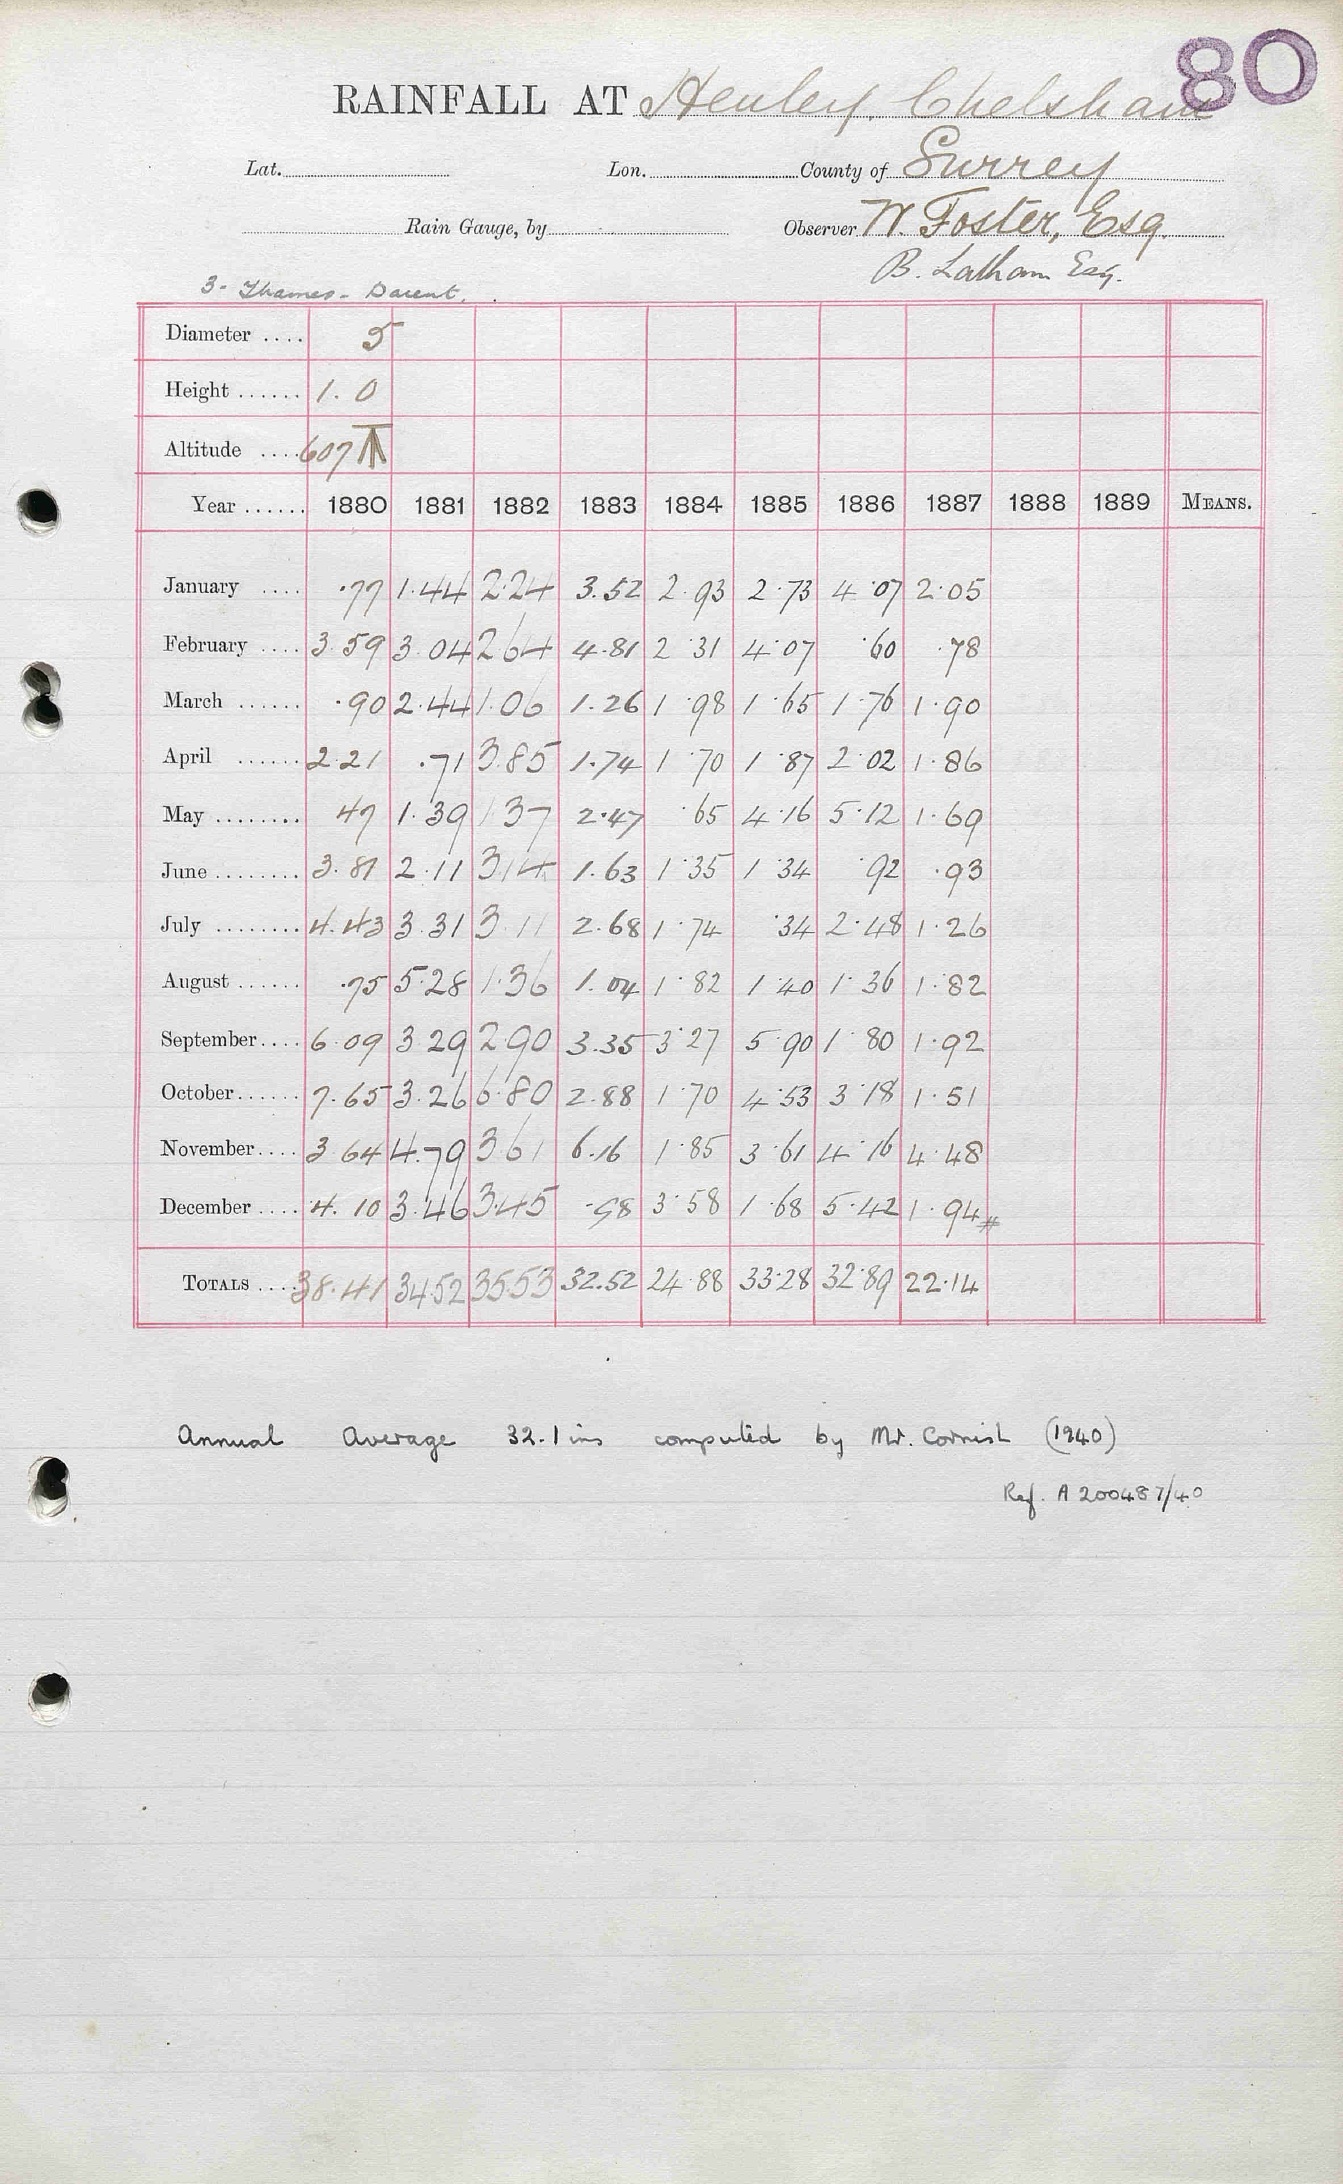 80
RAINFALL AT Henley, Chelsham
Lat. Lon. County of Surrey
Rain Gauge, by Observer W. Foster, Esq.
B. Latham Esq.
3- Thames - Darent.
Diameter .... 5
Height ...... 1.0
Altitude .... 607
Year ...... 1880 1881 1882 1883 1884 1885 1886 1887 1888 1889 MEANS.
January .... .77 1.44 2.24 3.52 2.93 2.73 4.07 2.05
February .... 3.59 3.04 2.64 4.81 2.31 4.07 .60 .78
March ...... .90 2.44 1.06 1.26 1.98 1.65 1.76 1.90
April ...... 2.21 .71 3.85 1.74 1.70 1.87 2.02 1.86
May ........ 47 1.39 1.37 2.47 .65 4.16 5.12 1.69
June ........ 3.81 2.11 3.14 1.63 1.35 1.34 .92 .93
July ........ 4.43 3.31 3.11 2.68 1.74 .34 2.48 1.26
August ...... .75 5.28 1.36 1.04 1.82 1.40 1.36 1.82
September .... 6.09 3.29 2.90 3.35 3.27 5.90 1.80 1.92
October ...... 7.65 3.26 6.80 2.88 1.70 4.53 3.18 1.51
November .... 3.64 4.79 3.61 6.16 1.85 3.61 4.16 4.48
December .... 4.10 3.46 3.45 .98 3.58 1.68 5.42 1.94#
TOTALS .... 38.41 34.52 35.53 32.52 24.88 33.28 32.89 22.14
Annual Average 32.1 ins computed by Mr. Cornish (1940)
Ref. A 200487/40